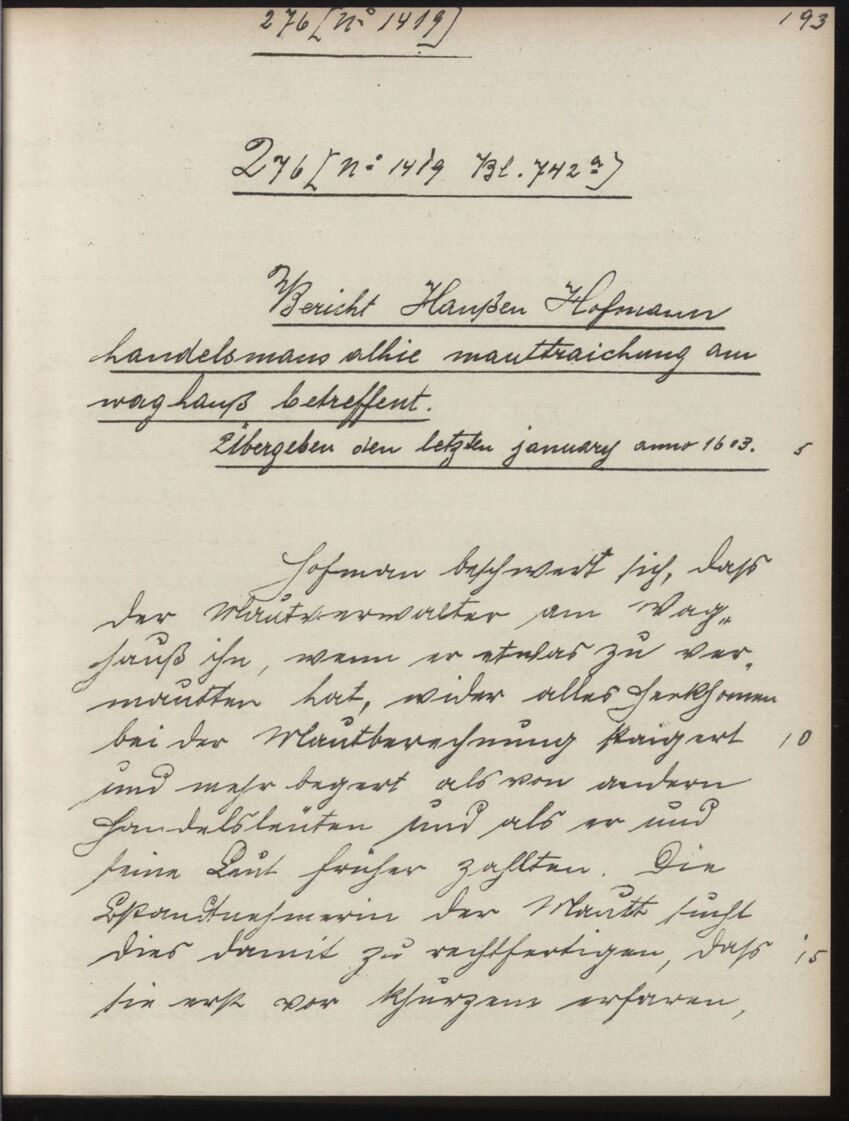 276 [No 1419] 193
276 [No 1419 Bl. 742a]
Bericht Hanßen Hofmann
handelsmans alhie mauttraichung am
waghauß betreffent.
Übergeben den letzten january anno 1603. 5
Hofman beschwert sich, dass
der Mautverwalter am Wag„
hauß ihn, wenn er etwas zu ver„
mautten hat, wider alles Herkhomen
bei der Mautberechnung staigert 10
und mehr begert als von andern
Handelsleuten und als er und
seine Leut früher zahlten. Die
Bstandtnehmerin der Mautt sucht
dies damit zu rechtfertigen, dass 15
sie erst vor khurzem erfaren,